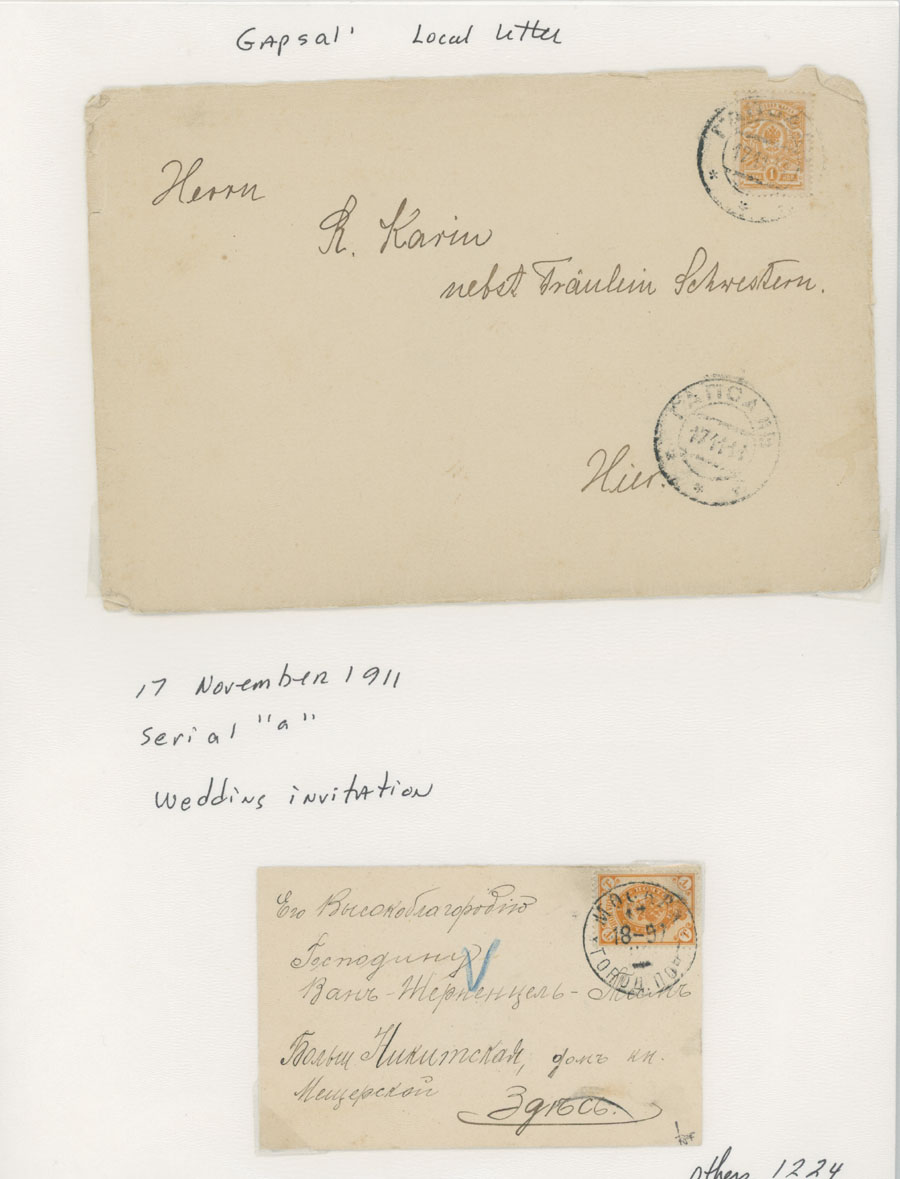 Gapsal' Local letter
ГАПСАЛЬ
1
Herrn
R. Karin
nebst Fräulein Schwestern.
ГАПСАЛЬ
17 11 11
Hier.
17 November 1911
Serial "a"
Wedding invitation
МОСКВА
18-
ГОРОД. ПО
Его Высокоблагородію
Господину
Ванъ-
Больш Никитская, домъ кн.
Мещерской
Здѣсь.
others 1224